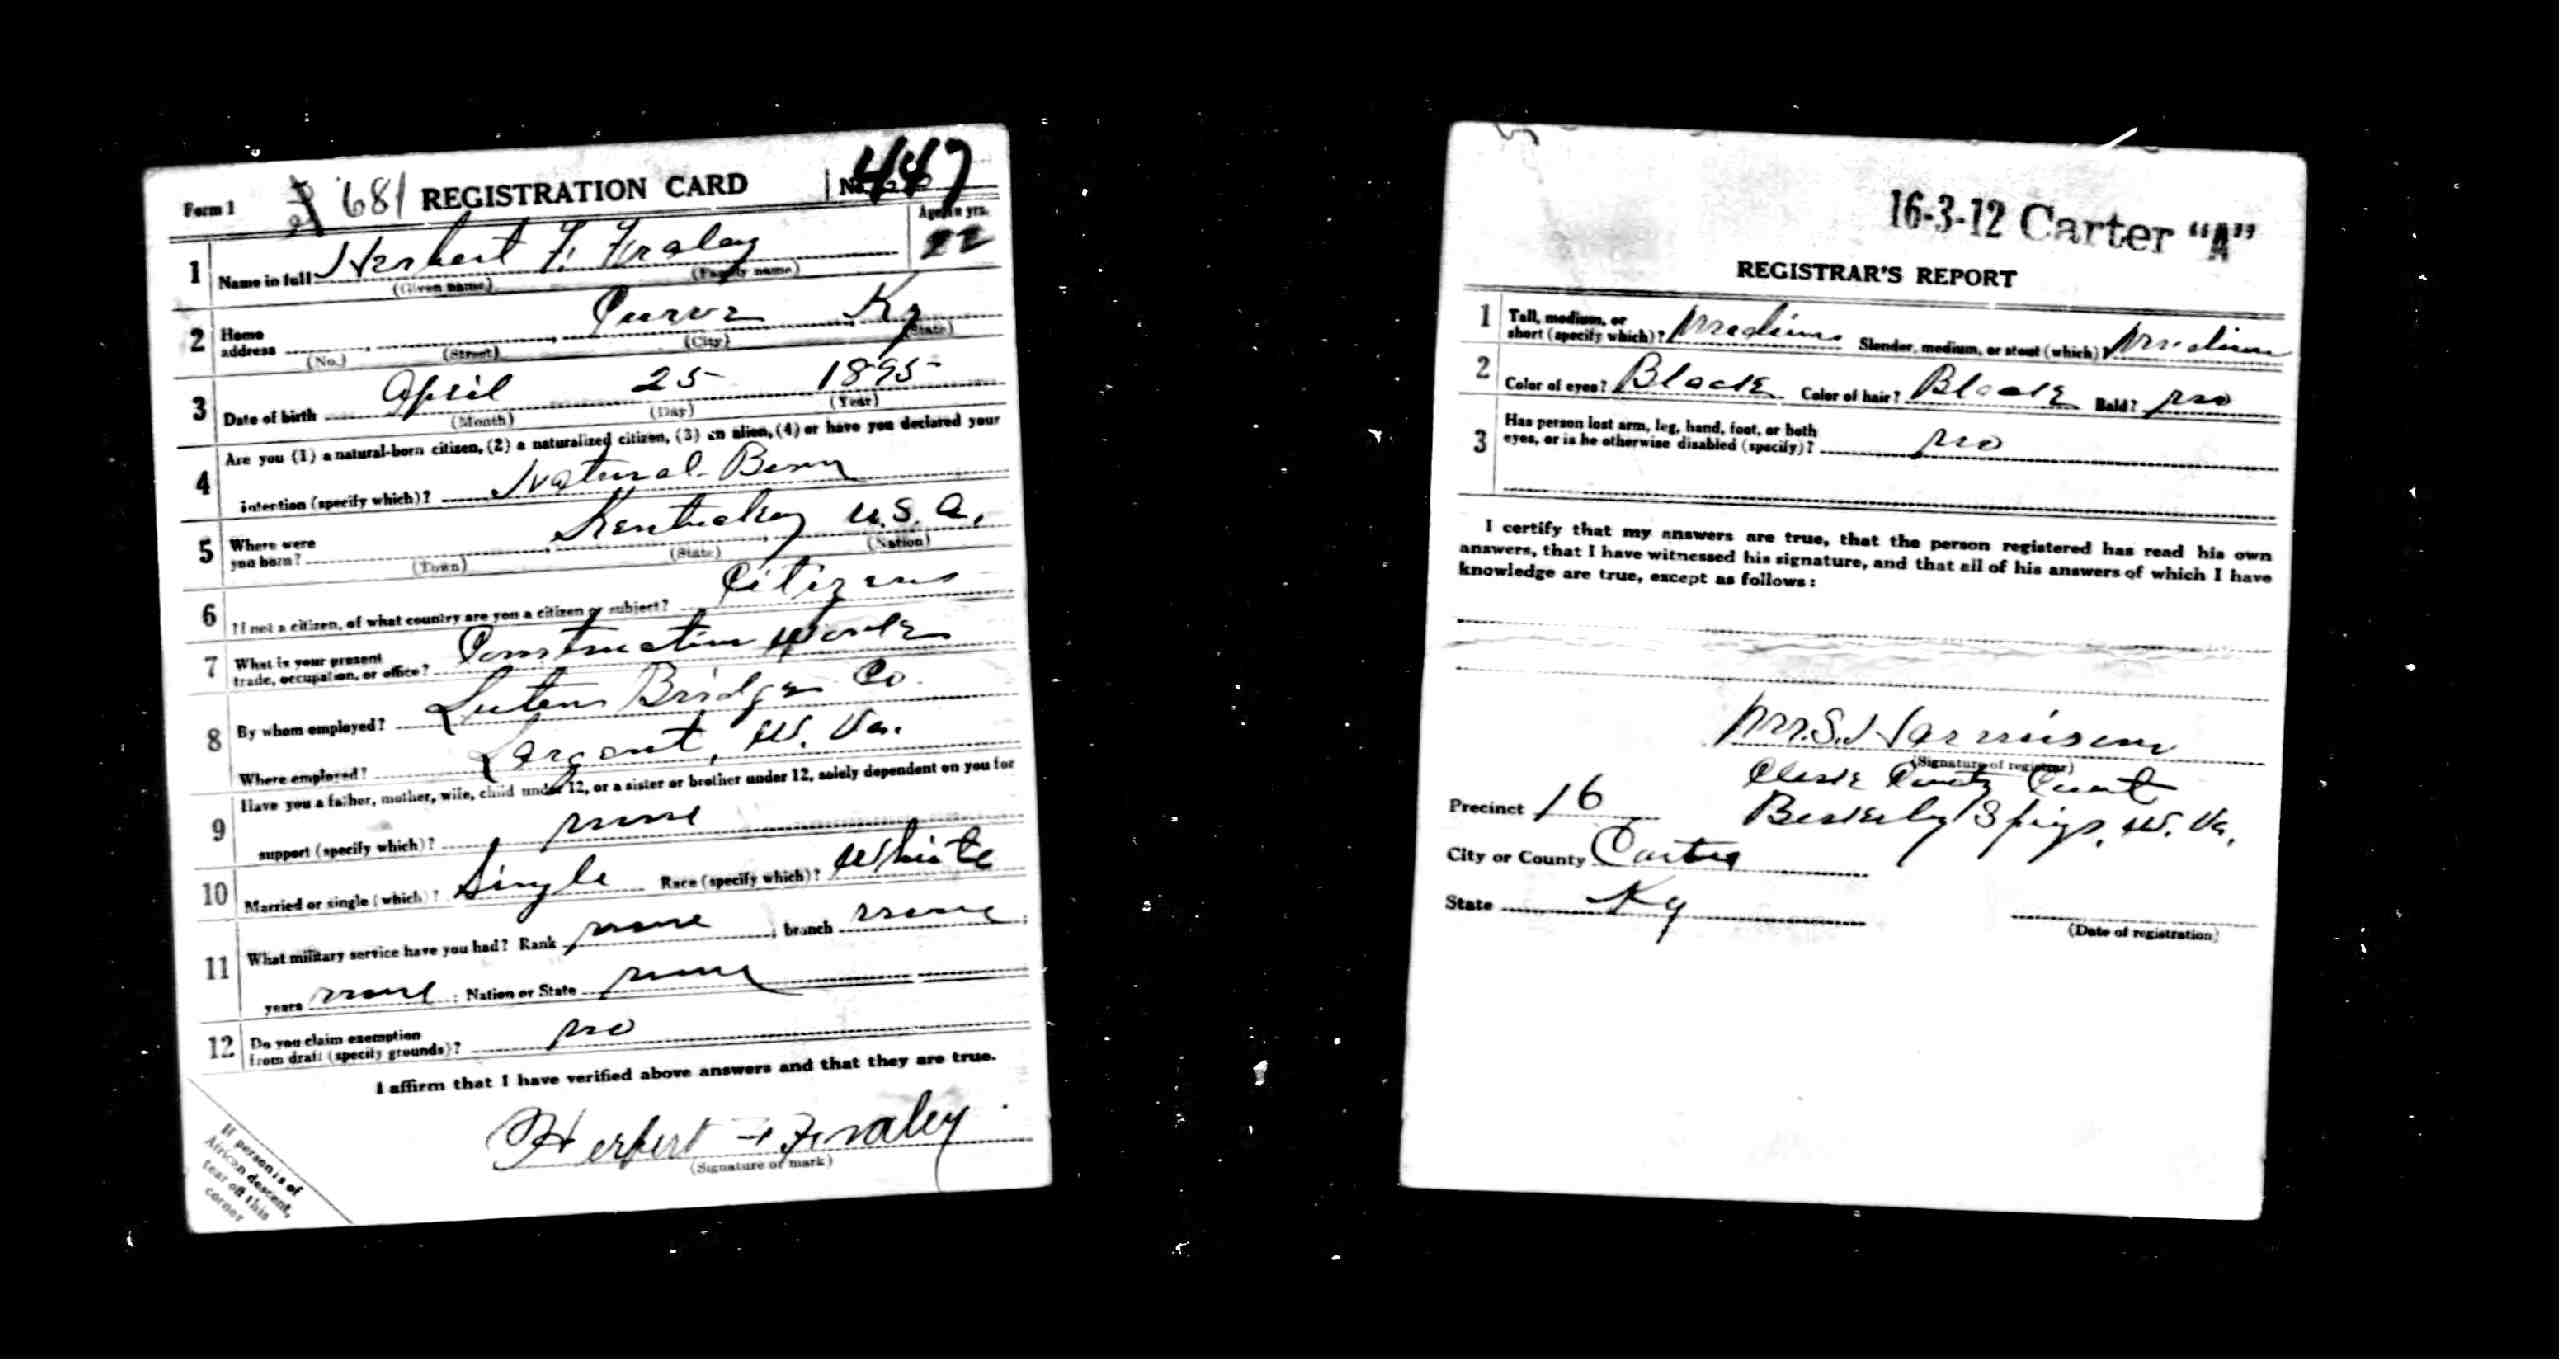 Form 1 681 REGISTRATION CARD No. 447
Age in yrs.
1 Name in full Herbert F. Fraley 22
(Given name) (Family name)
2 Home address Curve Ky
(No.) (Street) (City) (State)
3 Date of birth April 25 1895
(Month) (Day) (Year)
Are you (1) a natural-born citizen, (2) a naturalized citizen, (3) an alien, (4) or have you declared your
4 intention (specify which)? Natural-Born
5 Where were you born? Kentucky U.S.A.
(Town) (State) (Nation)
6 If not a citizen, of what country are you a citizen or subject? Citizen
7 What is your present trade, occupation, or office? Construction Work
8 By whom employed? Luten Bridge Co.
Where employed? Largent, W. Va.
9 Have you a father, mother, wife, child under 12, or a sister or brother under 12, solely dependent on you for
support (specify which)? none
10 Married or single (which)? Single Race (specify which)? White
11 What military service have you had? Rank none ; branch none ;
years none ; Nation or State none
12 Do you claim exemption from draft (specify grounds)? no
I affirm that I have verified above answers and that they are true.
Herbert F Fraley
(Signature or mark)
If person is of
African descent,
tear off this
corner
16-3-12 Carter "A"
REGISTRAR'S REPORT
1 Tall, medium, or short (specify which)? Medium Slender, medium, or stout (which)? Medium
2 Color of eyes? Black Color of hair? Black Bald? no
3 Has person lost arm, leg, hand, foot, or both eyes, or is he otherwise disabled (specify)? no
I certify that my answers are true, that the person registered has read his own
answers, that I have witnessed his signature, and that all of his answers of which I have
knowledge are true, except as follows:
M.S. Harrison
(Signature of registrar)
Clerk County Court
Precinct 16 Berkeley Spigs, W. Va.
City or County Carter
State Ky
(Date of registration)